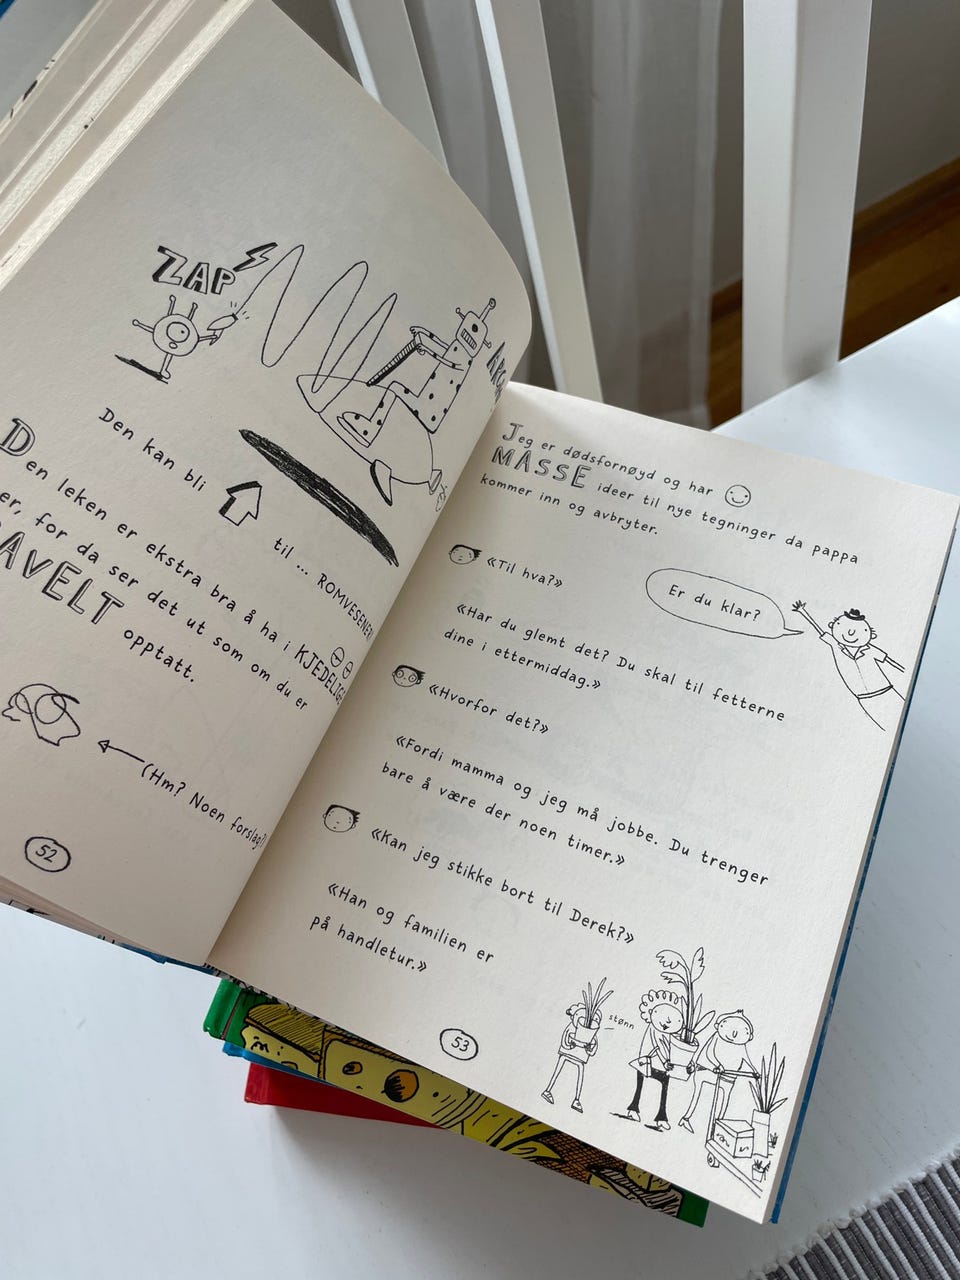 ZAP
Den kan bli
til ... ROMVESENER!
Den leken er ekstra bra å ha i KJEDELIGE
er, for da ser det ut som om du er
AVELT opptatt.
(Hm? Noen forslag?)
52
Jeg er dødsfornøyd og har
MASSE ideer til nye tegninger da pappa
kommer inn og avbryter.
«Til hva?»
Er du klar?
«Har du glemt det? Du skal til fetterne
dine i ettermiddag.»
«Hvorfor det?»
«Fordi mamma og jeg må jobbe. Du trenger
bare å være der noen timer.»
«Kan jeg stikke bort til Derek?»
«Han og familien er
på handletur.»
stønn
53